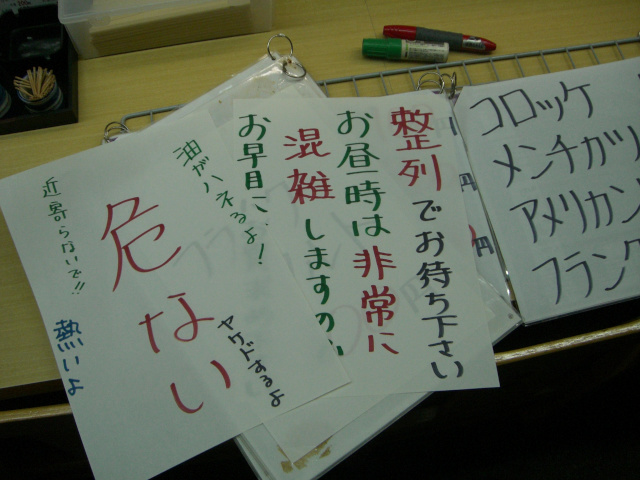 整列でお待ち下さい
お昼時は非常に
混雑しますので
お早目に
油がハネるよ!
危ない
ヤケドするよ
近寄らないで!!
熱いよ
コロッケ
メンチカツ
アメリカン
フランク
円
円